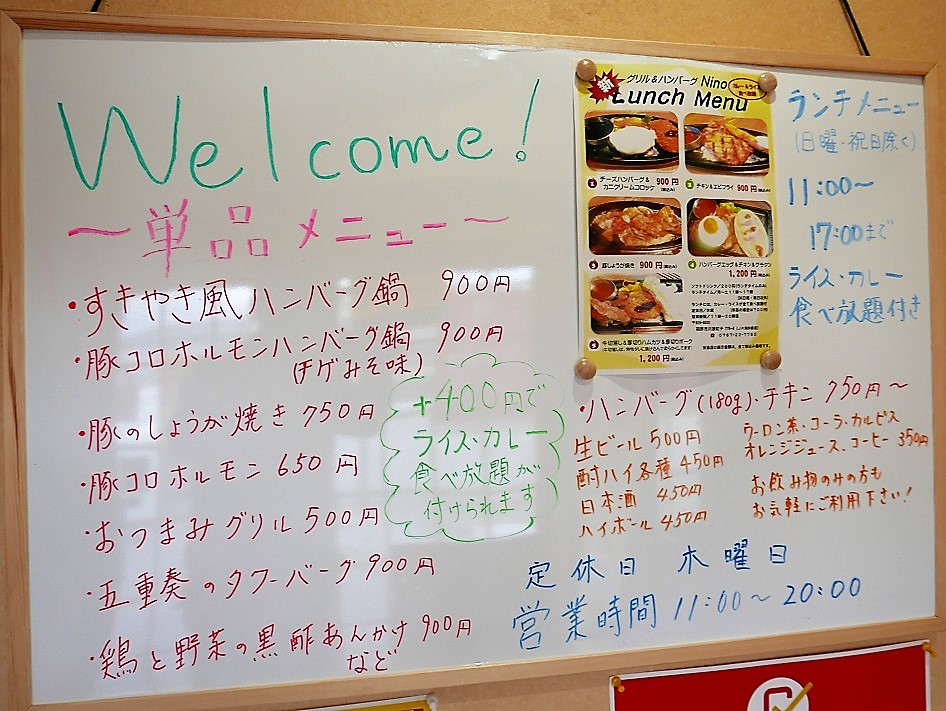 Welcome!
～単品メニュー～
・すきやき風ハンバーグ鍋 900円
・豚コロホルモンハンバーグ鍋 900円
(チゲみそ味)
・豚のしょうが焼き 750円
・豚コロホルモン 650円
・おつまみグリル 500円
・五重奏のタワーバーグ 900円
・鶏と野菜の黒酢あんかけ 900円
など
+400円で
ライス・カレー
食べ放題が
付けられます
グリル&ハンバーグ Nino
カレー&ライス
食べ放題
Lunch Menu
チーズハンバーグ&
カニクリームコロッケ 900円(税込み)
チキン&エビフライ 900円(税込み)
豚しょうが焼き 900円(税込み)
ハンバーグエッグ&チキン&グラタン
1,200円(税込み)
牛切落し&厚切りハムカツ&厚切りポーク
1,200円(税込み)
ソフトドリンク/200円(ランチタイムのみ)
ランチメニュー
(日曜・祝日除く)
11:00～
17:00まで
ライス・カレー
食べ放題付き
・ハンバーグ(180g)・チキン 750円～
生ビール 500円
酎ハイ各種 450円
日本酒 450円
ハイボール 450円
ウーロン茶・コーラ・カルピス
オレンジジュース、コーヒー 350円
お飲み物のみの方も
お気軽にご利用下さい!
定休日 木曜日
営業時間 11:00～20:00